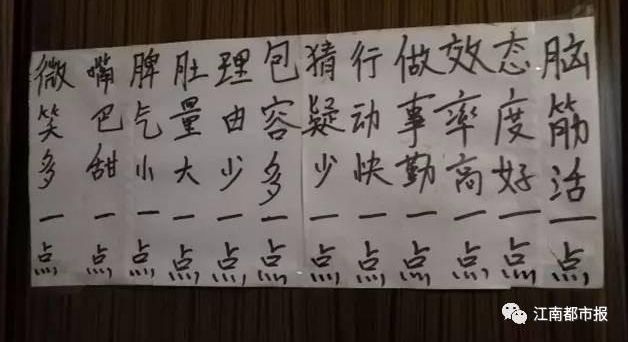 脑筋活一点,
态度好一点,
效率高一点,
做事勤一点,
行动快一点,
猜疑少一点,
包容多一点,
理由少一点,
肚量大一点,
脾气小一点,
嘴巴甜一点,
微笑多一点,
江南都市报